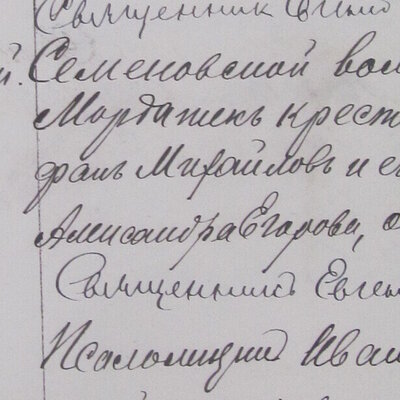 Священник Евгений
й. Семеновской вол
Мордашекъ крест
фанъ Михайловъ и е
Александра Егорова, о
Священникъ Евгені
Псаломщикъ Иван